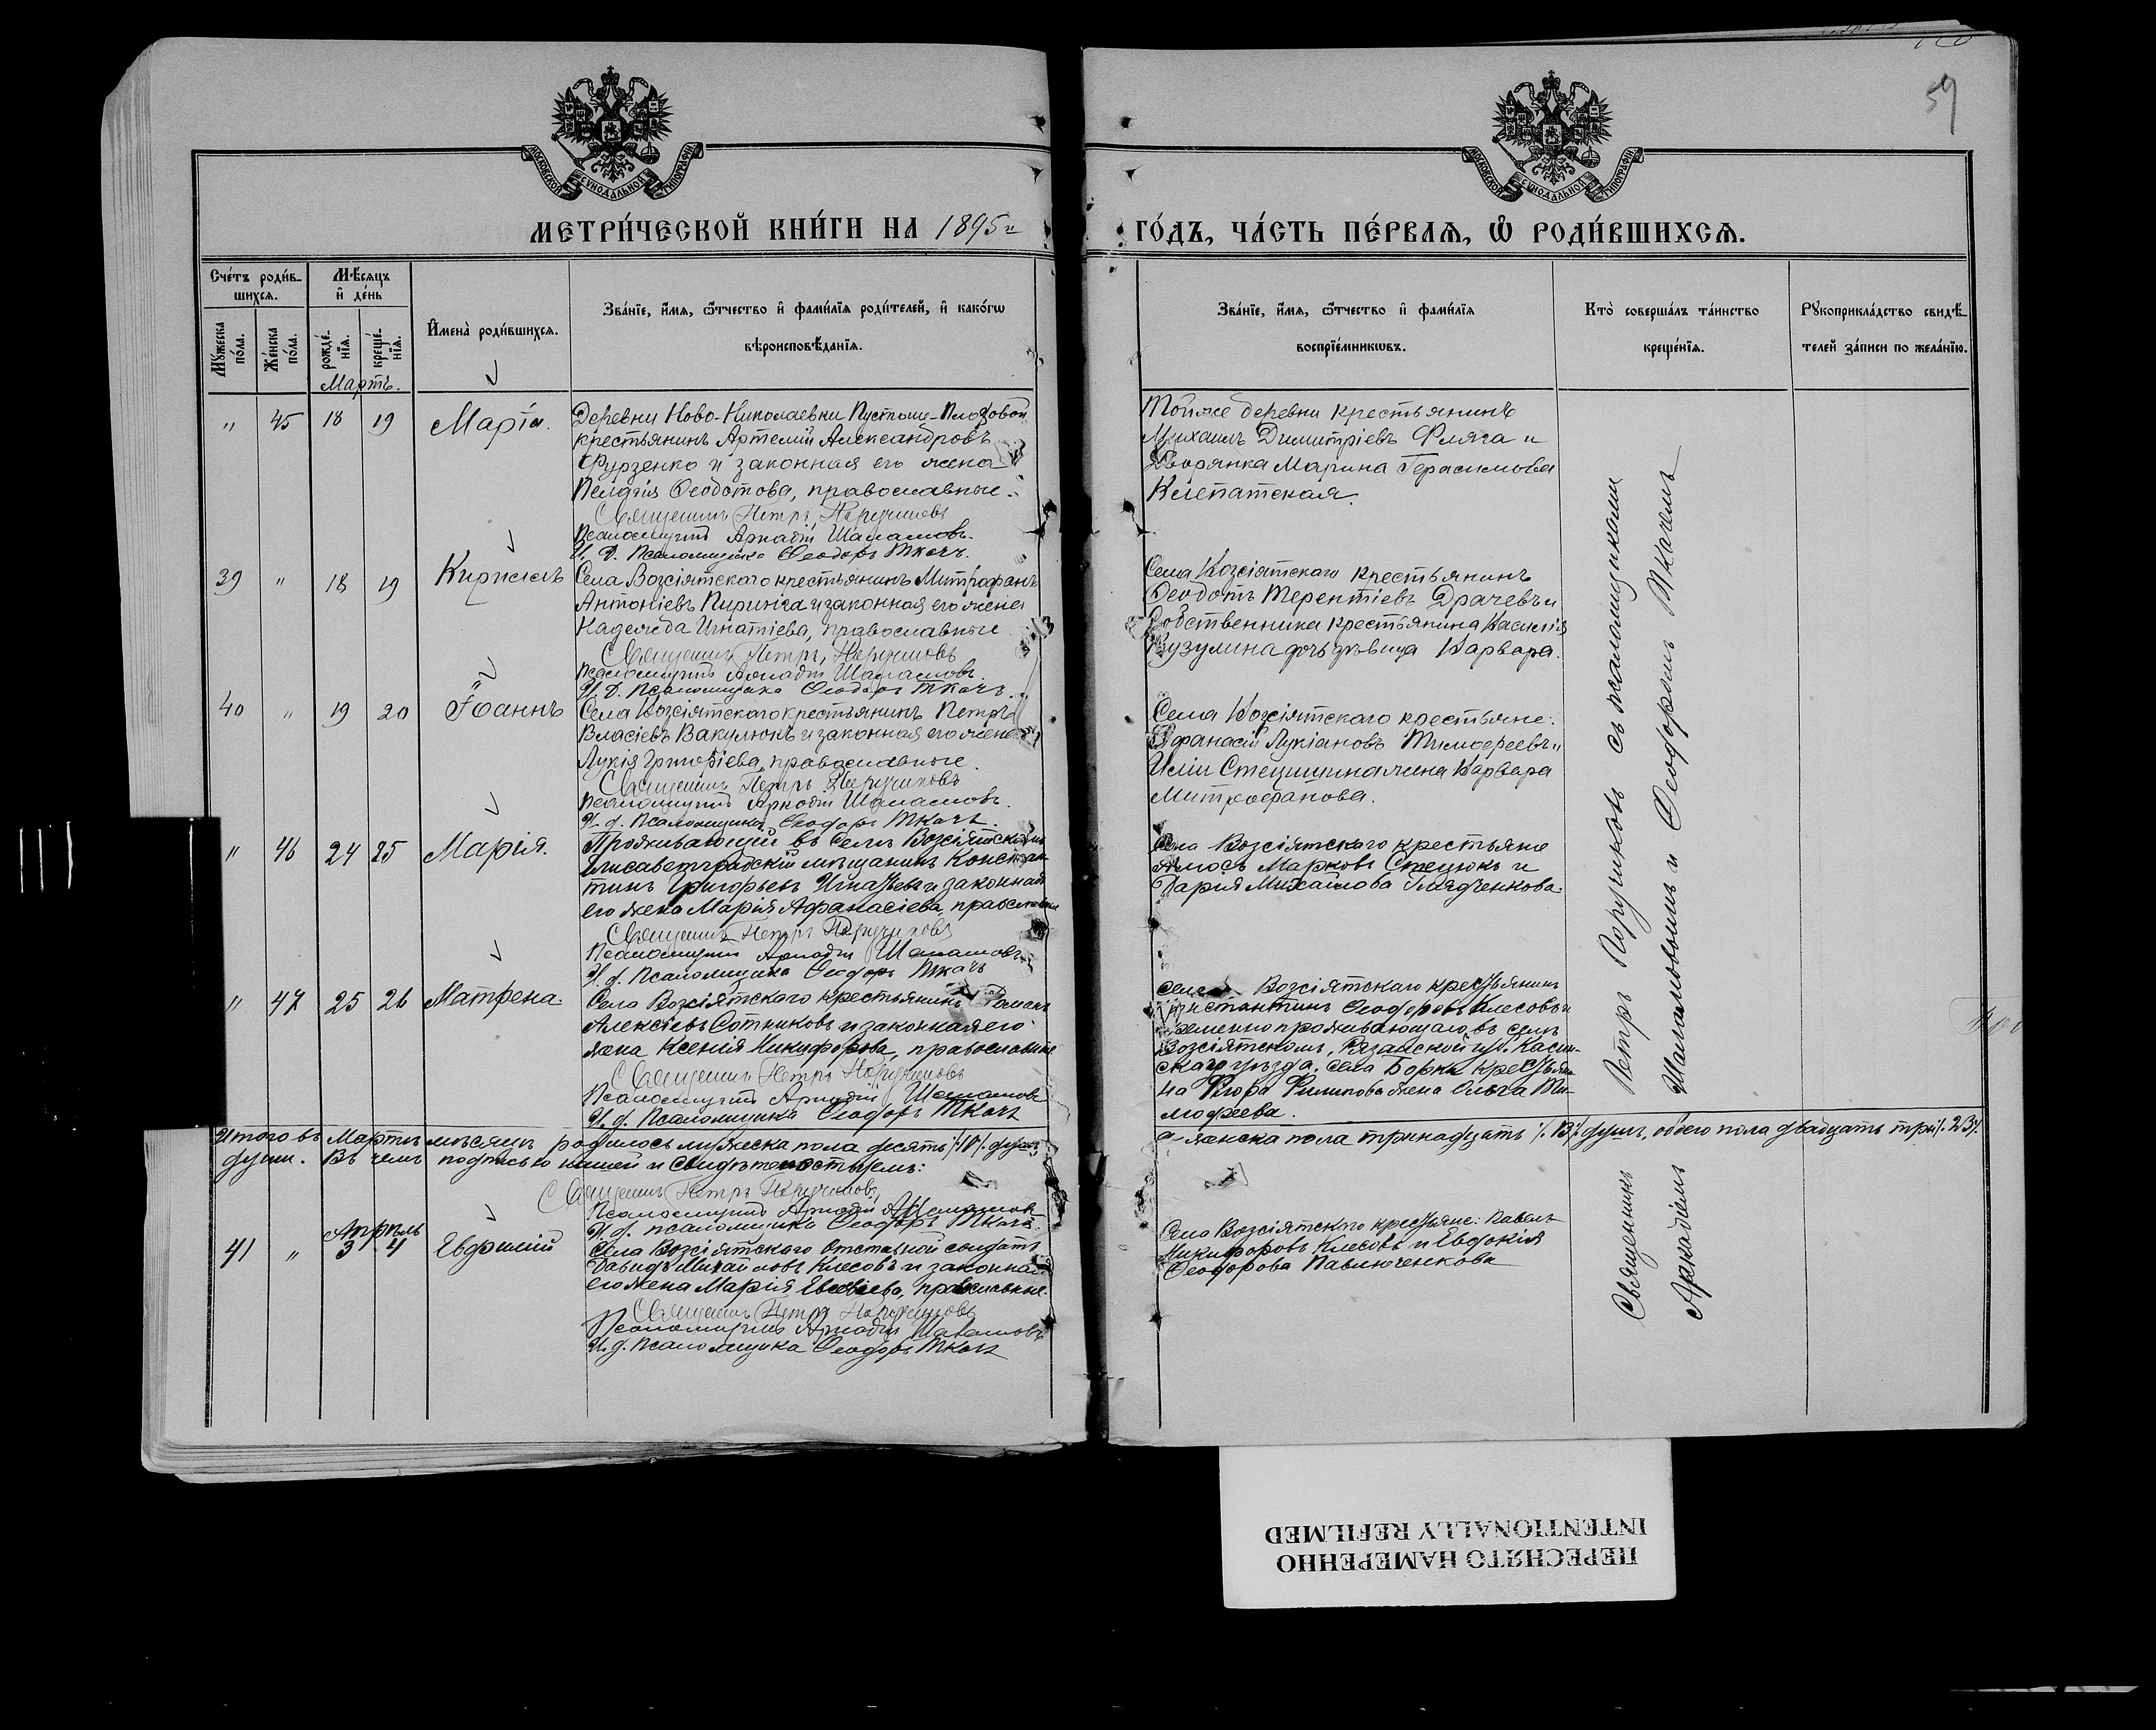 59
МОСКОВСКОЙ СѴНОДАЛЬНОЙ ТИПОГРАФІИ
МОСКОВСКОЙ СѴНОДАЛЬНОЙ ТИПОГРАФІИ
МЕТРИ́ЧЕСКОЙ КНИ́ГИ НА 1895 й
ГО́ДЪ, ЧА́СТЬ ПЕ́РВАѦ, Ѡ҆ РОДИ́ВШИХСѦ.
Сче́тъ роди́в-
шихсѧ.
Мѹ́жеска по́ла.
Же́нска по́ла.
Мѣ́сѧцъ
и҆ де́нь
рожде́-
нїѧ.
креще́-
нїѧ.
И҆мена̀ роди́вшихсѧ.
Зва́нїе, и҆́мѧ, ѻ҆́тчество и҆ фами́лїѧ роди́телей, и҆ како́гѡ
вѣроисповѣ́данїѧ.
Зва́нїе, и҆́мѧ, ѻ҆́тчество и҆ фами́лїѧ
воспрїе́мникѡвъ.
Кто̀ соверша́лъ та́инство
креще́нїѧ.
Рѹкоприкла́дство свидѣ́-
телей за́писи по жела́нїю.
Мартъ.
" 45 18 19 Марія.
Деревни Ново-Николаевки Пустоше-Плоховой
крестьянинъ Артемій Александровъ
Фурзенко и законная его жена
Пелагія Ѳеодотова, православные.
Священникъ Петръ Поручиковъ
Псаломщикъ Аркадій Шаламовъ.
И. Д. Псаломщика Ѳеодоръ Ткачъ.
Тойже деревни крестьянинъ
Михаилъ Димитріевъ Фляга и
Дворянка Марина Герасимова
Клепатская.
39 " 18 19 Кириллъ
Села Возсіятскаго крестьянинъ Митрофанъ
Антоніевъ и законная его жена
Надежда Игнатіева, православные
Священникъ Петръ Поручиковъ
Псаломщикъ Аркадій Шаламовъ.
И. Д. Псаломщика Ѳеодоръ Ткачъ.
Села Возсіятскаго крестьянинъ
Ѳеодотъ Терентіевъ Драчевъ и
Собственника крестьянина Василія
Кузулина дочь дѣвица Варвара.
40 " 19 20 Іоаннъ
Села Возсіятскаго крестьянинъ Петръ
Власіевъ Вакулюкъ и законная его жена
Лукія Григоріева, православные.
Священникъ Петръ Поручиковъ
Псаломщикъ Аркадій Шаламовъ.
И. д. Псаломщика Ѳеодоръ Ткачъ.
Села Возсіятскаго крестьяне:
Афанасій Лукіановъ Тимоѳеевъ и
Иліи Стецишина жена Варвара
Митрофанова.
" 46 24 25 Марія.
Проживающій въ селѣ Возсіятскомъ
Елисаветградскій мѣщанинъ Констан-
тинъ Григорьевъ Игнатьевъ и законная
его жена Марія Афанасіева, православные
Священникъ Петръ Поручиковъ
Псаломщикъ Аркадій Шаламовъ
И. д. Псаломщика Ѳеодоръ Ткачъ
Села Возсіятскаго крестьяне
Амосъ Марковъ Стецюкъ и
Дарія Михайлова Гладченкова.
" 47 25 26 Матрена.
Села Возсіятскаго крестьянинъ Романъ
Алексіевъ Сотниковъ и законная его
жена Ксенія Никифорова, православные
Священникъ Петръ Поручиковъ
Псаломщикъ Аркадій Шаламовъ
И. д. Псаломщика Ѳеодоръ Ткачъ
Села Возсіятскаго крестьянинъ
Константинъ Ѳеодоровъ Клесовъ и
временно проживающаго въ селѣ
Возсіятскомъ, Рязанской губ. Касим-
скаго уѣзда, села Борки крестьяни-
на Филипова жена Ольга Ти-
моѳеева.
Итого въ Мартѣ мѣсяцѣ родилось мужеска пола десять /.10/. душъ
а женска пола тринадцать /.13/. душъ, обоего пола двадцать три /.23/.
души. Въ чемъ подписью нашей и свидѣтельствуемъ:
Священникъ Петръ Поручиковъ,
Псаломщикъ Аркадій Шаламовъ
И. д. псаломщика Ѳеодоръ Ткачъ.
Апрѣль
41 " 3 4 Евфимій
Села Возсіятскаго Отставной солдатъ
Давидъ Михайловъ Клесовъ и законная
его жена Марія Евсевіева, православные.
Священникъ Петръ Поручиковъ
Псаломщикъ Аркадій Шаламовъ
И. д. Псаломщика Ѳеодоръ Ткачъ
Села Возсіятскаго крестьяне: Павелъ
Никифоровъ Клесовъ и Евдокія
Ѳеодорова Павлюченкова
Священникъ Петръ Поручиковъ съ псаломщиками
Аркадіемъ Шаламовымъ и Ѳеодоромъ Ткачемъ
ПЕРЕСНЯТО НАМЕРЕННО
INTENTIONALLY REFILMED